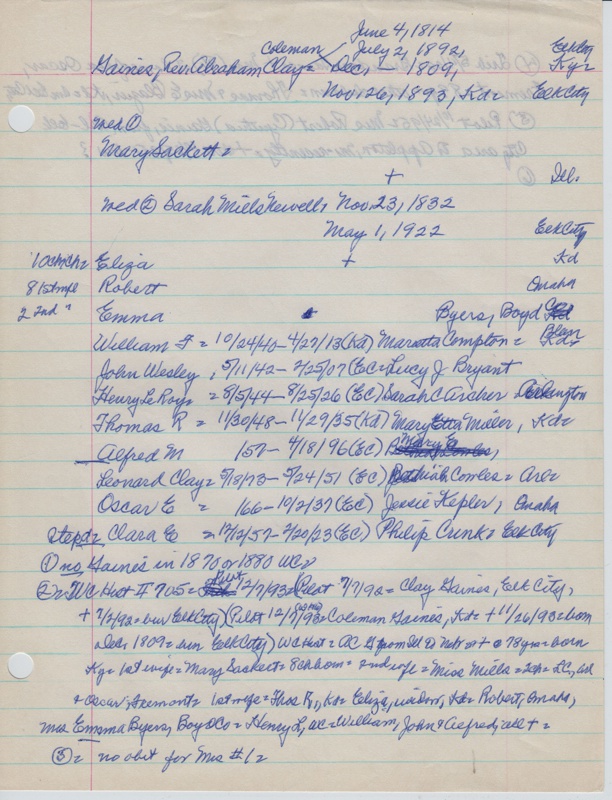 June 4, 1814
Coleman July 2, 1892, Elk City
Gaines, Rev. Abraham Clay = Dec, — 1809, Ky =
Nov. 26, 1893, Kd = Elk City
wed ①
Mary Sackett =
+ Ill.
wed ② Sarah Mills Newell = Nov. 23, 1832
May 1, 1922 Elk City
10 ch = Eliza + Kd
8 1st wife Robert Omaha
2 2nd " Emma Byers, Boyd Co
William F = 10/24/40 - 4/27/13 (Kd) Marietta Compton = Kd =
John Wesley, 5/11/42 - 2/25/07 (EC = Lucy J Bryant
Henry LeRoy = 8/5/44 - 8/25/26 (EC) Sarah C Archer =
Thomas R = 11/30/48 - 11/29/35 (Kd) Mary Etta Miller, Kd =
Alfred M 150 - 4/18/96 (EC) Mary E
Leonard Clay = 5/18/73 - 5/24/51 (EC) Bethiah Cowles =
Oscar E = 166 - 10/2/37 (EC) Jessie Kepler, Omaha
Clara E = 12/2/57 - 2/20/23 (EC) Philip Crink = Elk City
① no Gaines in 1870 or 1880 WC =
② = WC Hist # 705 = 12/7/93 = Pilot 7/7/92 = Clay Gaines, Elk City,
+ 7/2/92 = bur Elk City) (Pilot 12/7/93) = Coleman Gaines, Kd = + 11/26/93 = born
Dec, 1809 = bur Elk City) WC Hist = AC G from Ill to Nebr = + @ 78 yrs = born
Ky = 1st wife = Mary Sackett = 8 ch born = 2nd wife = Miss Mills = 2 ch = LC,
+ Oscar: 1st wife = Thos R, Kd = Eliza, widow, Kd = Robert, Omaha,
Mrs Emma Byers, Boyd Co = Henry L, William, John & Alfred, all + =
③ = no obit for Mrs # 1 =